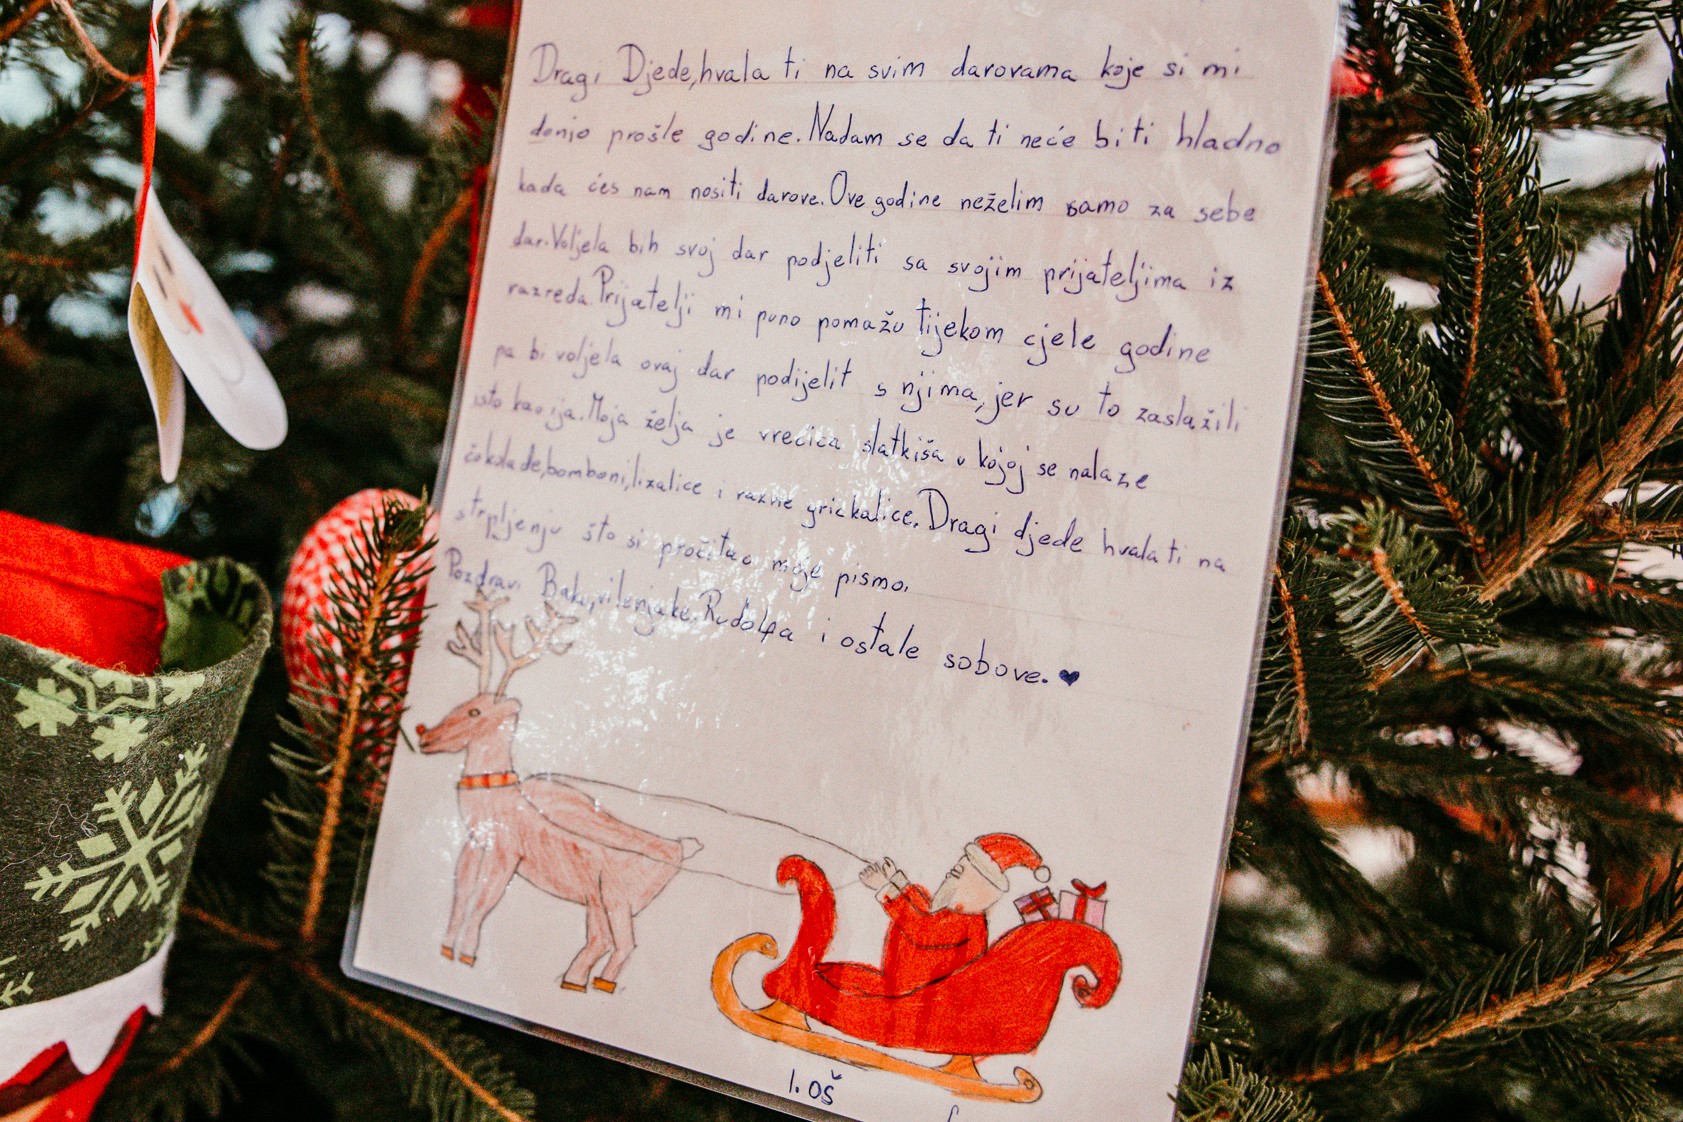 Dragi Djede,hvala ti na svim darovama koje si mi
donio prošle godine.Nadam se da ti neće biti hladno
kada ćes nam nositi darove.Ove godine neželim samo za sebe
dar.Voljela bih svoj dar podjeliti sa svojim prijateljima iz
razreda.Prijatelji mi puno pomažu tijekom cjele godine
pa bi voljela ovaj dar podijelit s njima,jer su to zaslažili
isto kao ija.Moja želja je vrećica slatkiša u kojoj se nalaze
čokolade,bomboni,lizalice i razne grickalice.Dragi djede hvala ti na
strpljenju što si pročitao moje pismo.
Pozdravi Baku,vilenjake,Rudolfa i ostale sobove.♥
1. OŠ